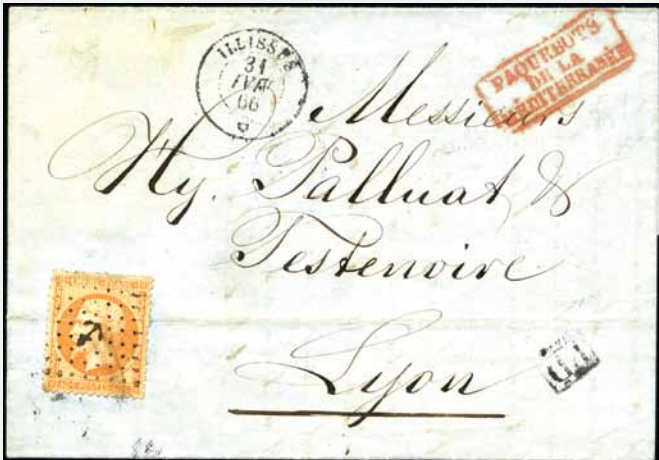 ILLISSUS
31
JANV.
66
PAQUEBOTS
DE LA
MÉDITERRANÉE
Messieurs
Hy. Palluat &
Testenoire
Lyon
P.D.